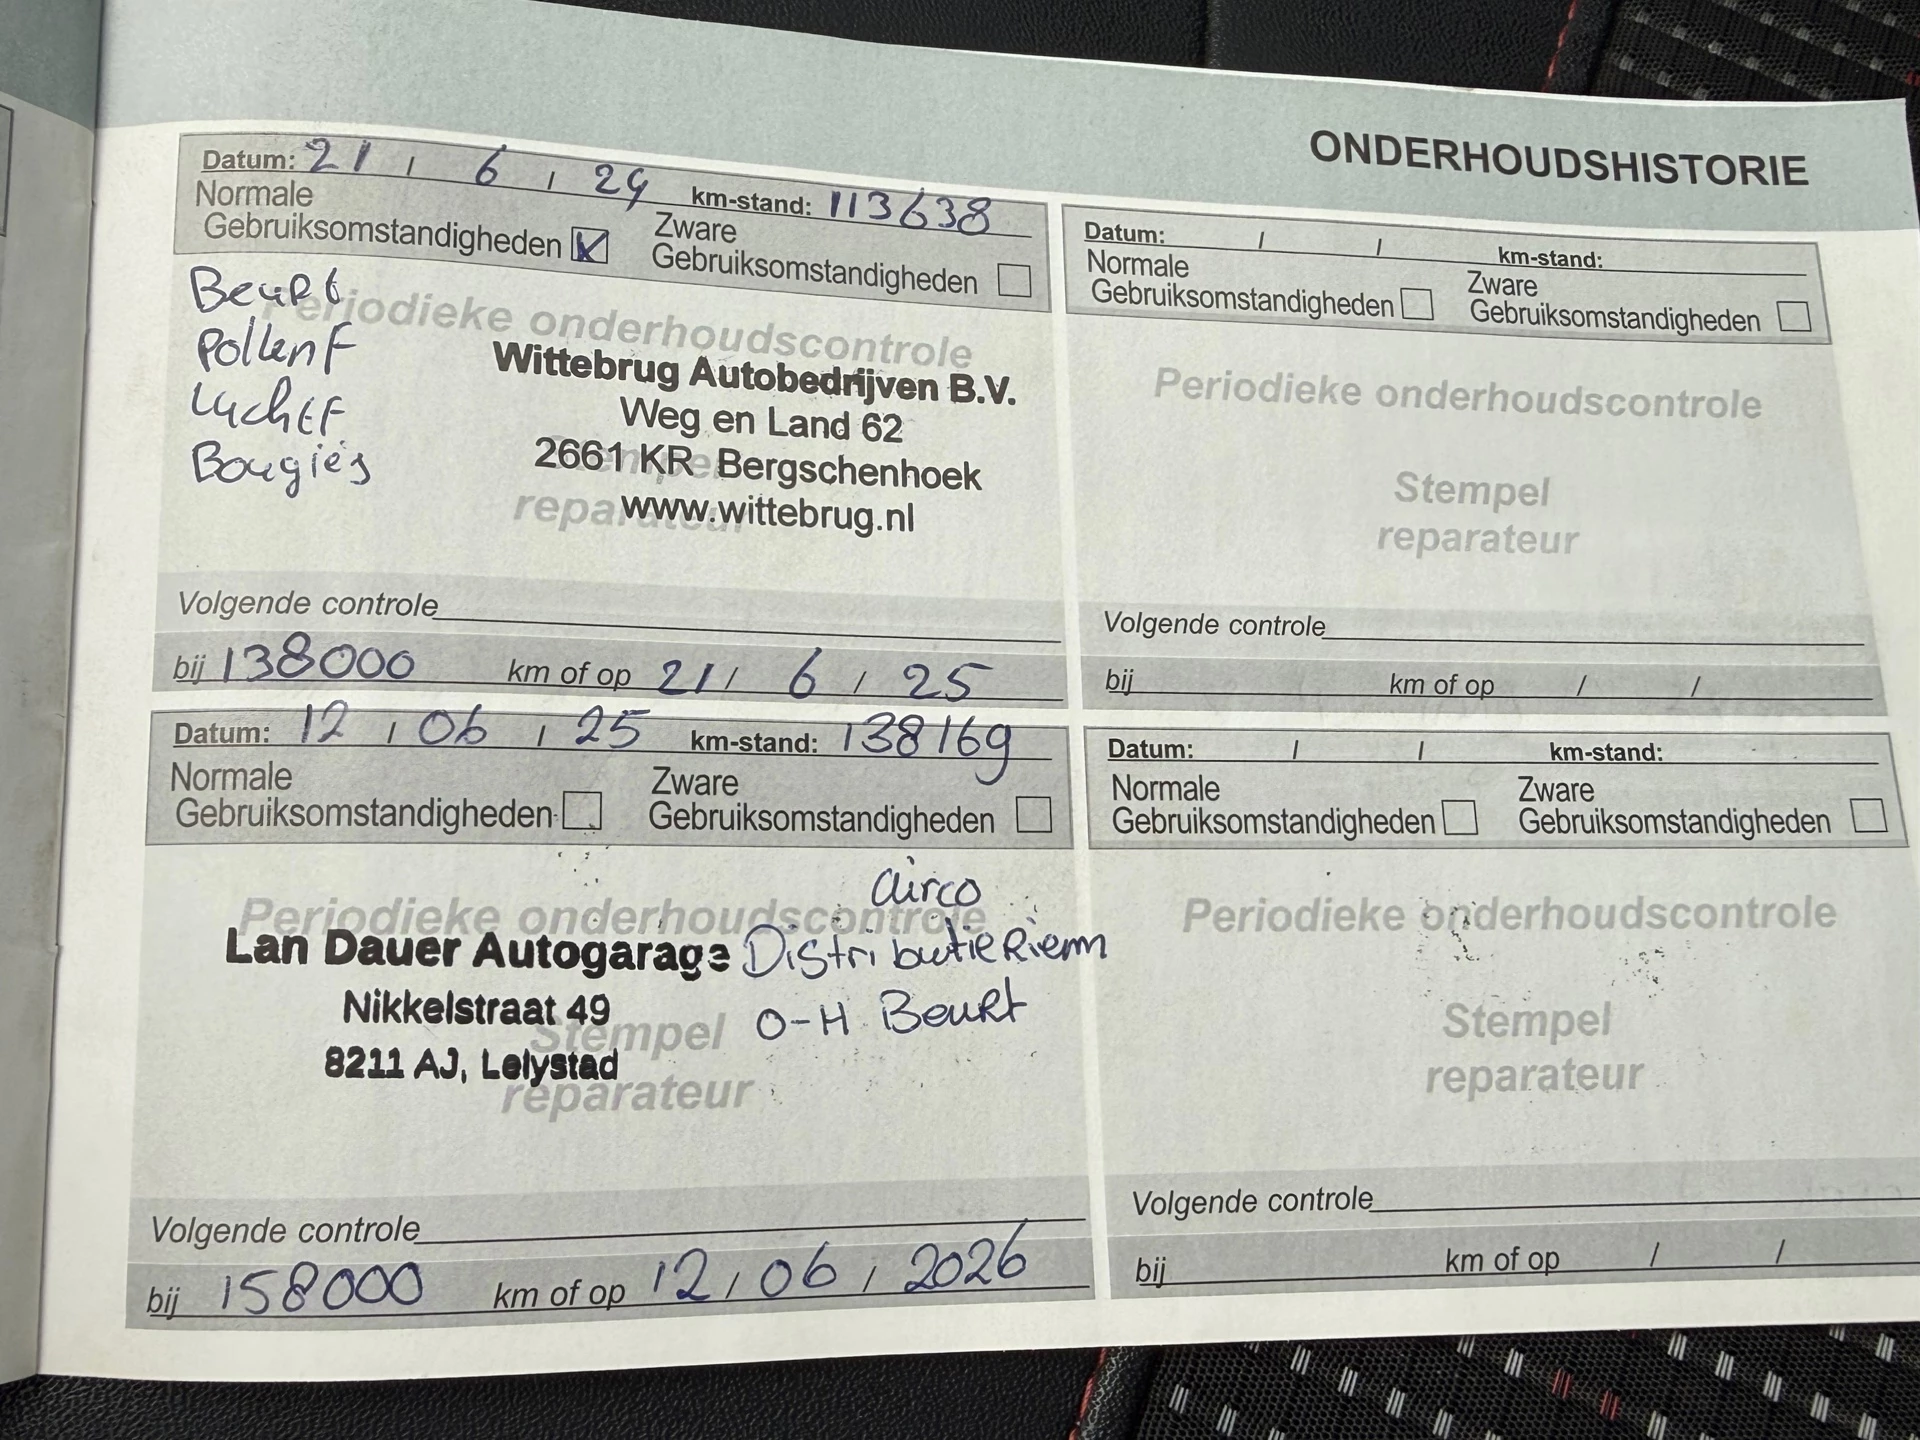 ONDERHOUDSHISTORIE
Datum: 21 / 6 / 24 km-stand: 113638
Normale
Gebruiksomstandigheden
Zware
Gebruiksomstandigheden
Beurt
Pollen F
Lucht F
Bougiés
Periodieke onderhoudscontrole
Wittebrug Autobedrijven B.V.
Weg en Land 62
2661 KR Bergschenhoek
www.wittebrug.nl
reparateur
Volgende controle
bij 138000 km of op 21 / 6 / 25
Datum: 12 / 06 / 25 km-stand: 138169
Normale
Gebruiksomstandigheden
Zware
Gebruiksomstandigheden
airco
Periodieke onderhoudscontrole
Lan Dauer Autogarage Distributie Riem
Nikkelstraat 49 O-H Beurt
Stempel
8211 AJ, Lelystad
reparateur
Volgende controle
bij 158000 km of op 12 / 06 / 2026
Datum: / / km-stand:
Normale
Gebruiksomstandigheden
Zware
Gebruiksomstandigheden
Periodieke onderhoudscontrole
Stempel
reparateur
Volgende controle
bij km of op / /
Datum: / / km-stand:
Normale
Gebruiksomstandigheden
Zware
Gebruiksomstandigheden
Periodieke onderhoudscontrole
Stempel
reparateur
Volgende controle
bij km of op / /